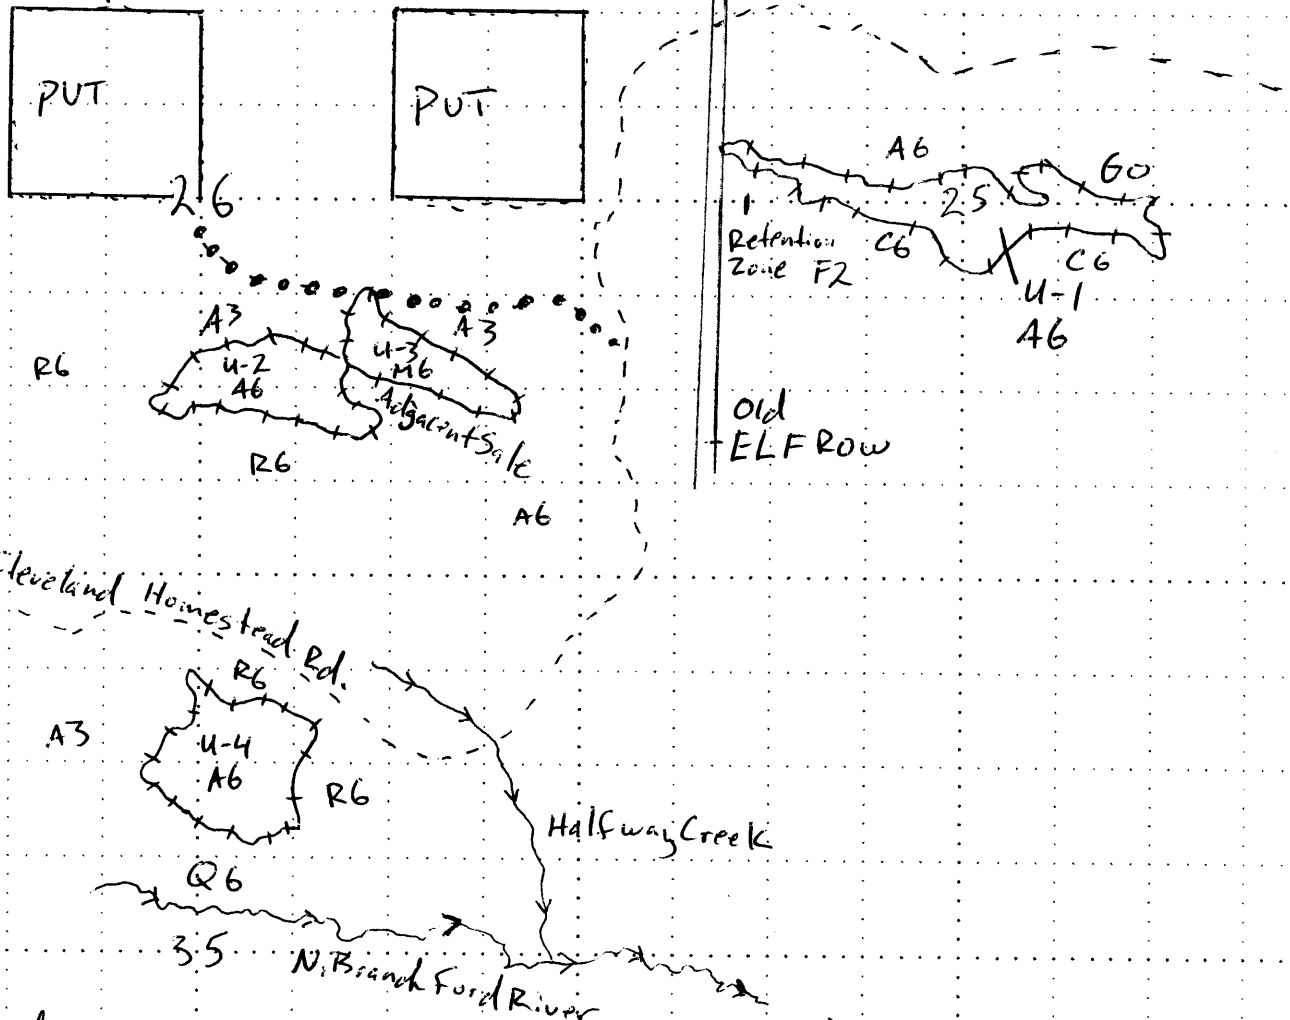 PUT
PUT
26
A6
25
Go
Retention
Zone F2
C6
C6
U-1
A6
A3
U-2
A6
A3
U-3
M6
Adjacent Sale
R6
R6
A6
Old
ELF ROW
Cleveland Homestead Rd.
R6
A3
U-4
A6
R6
Halfway Creek
Q6
35
N. Branch Ford River